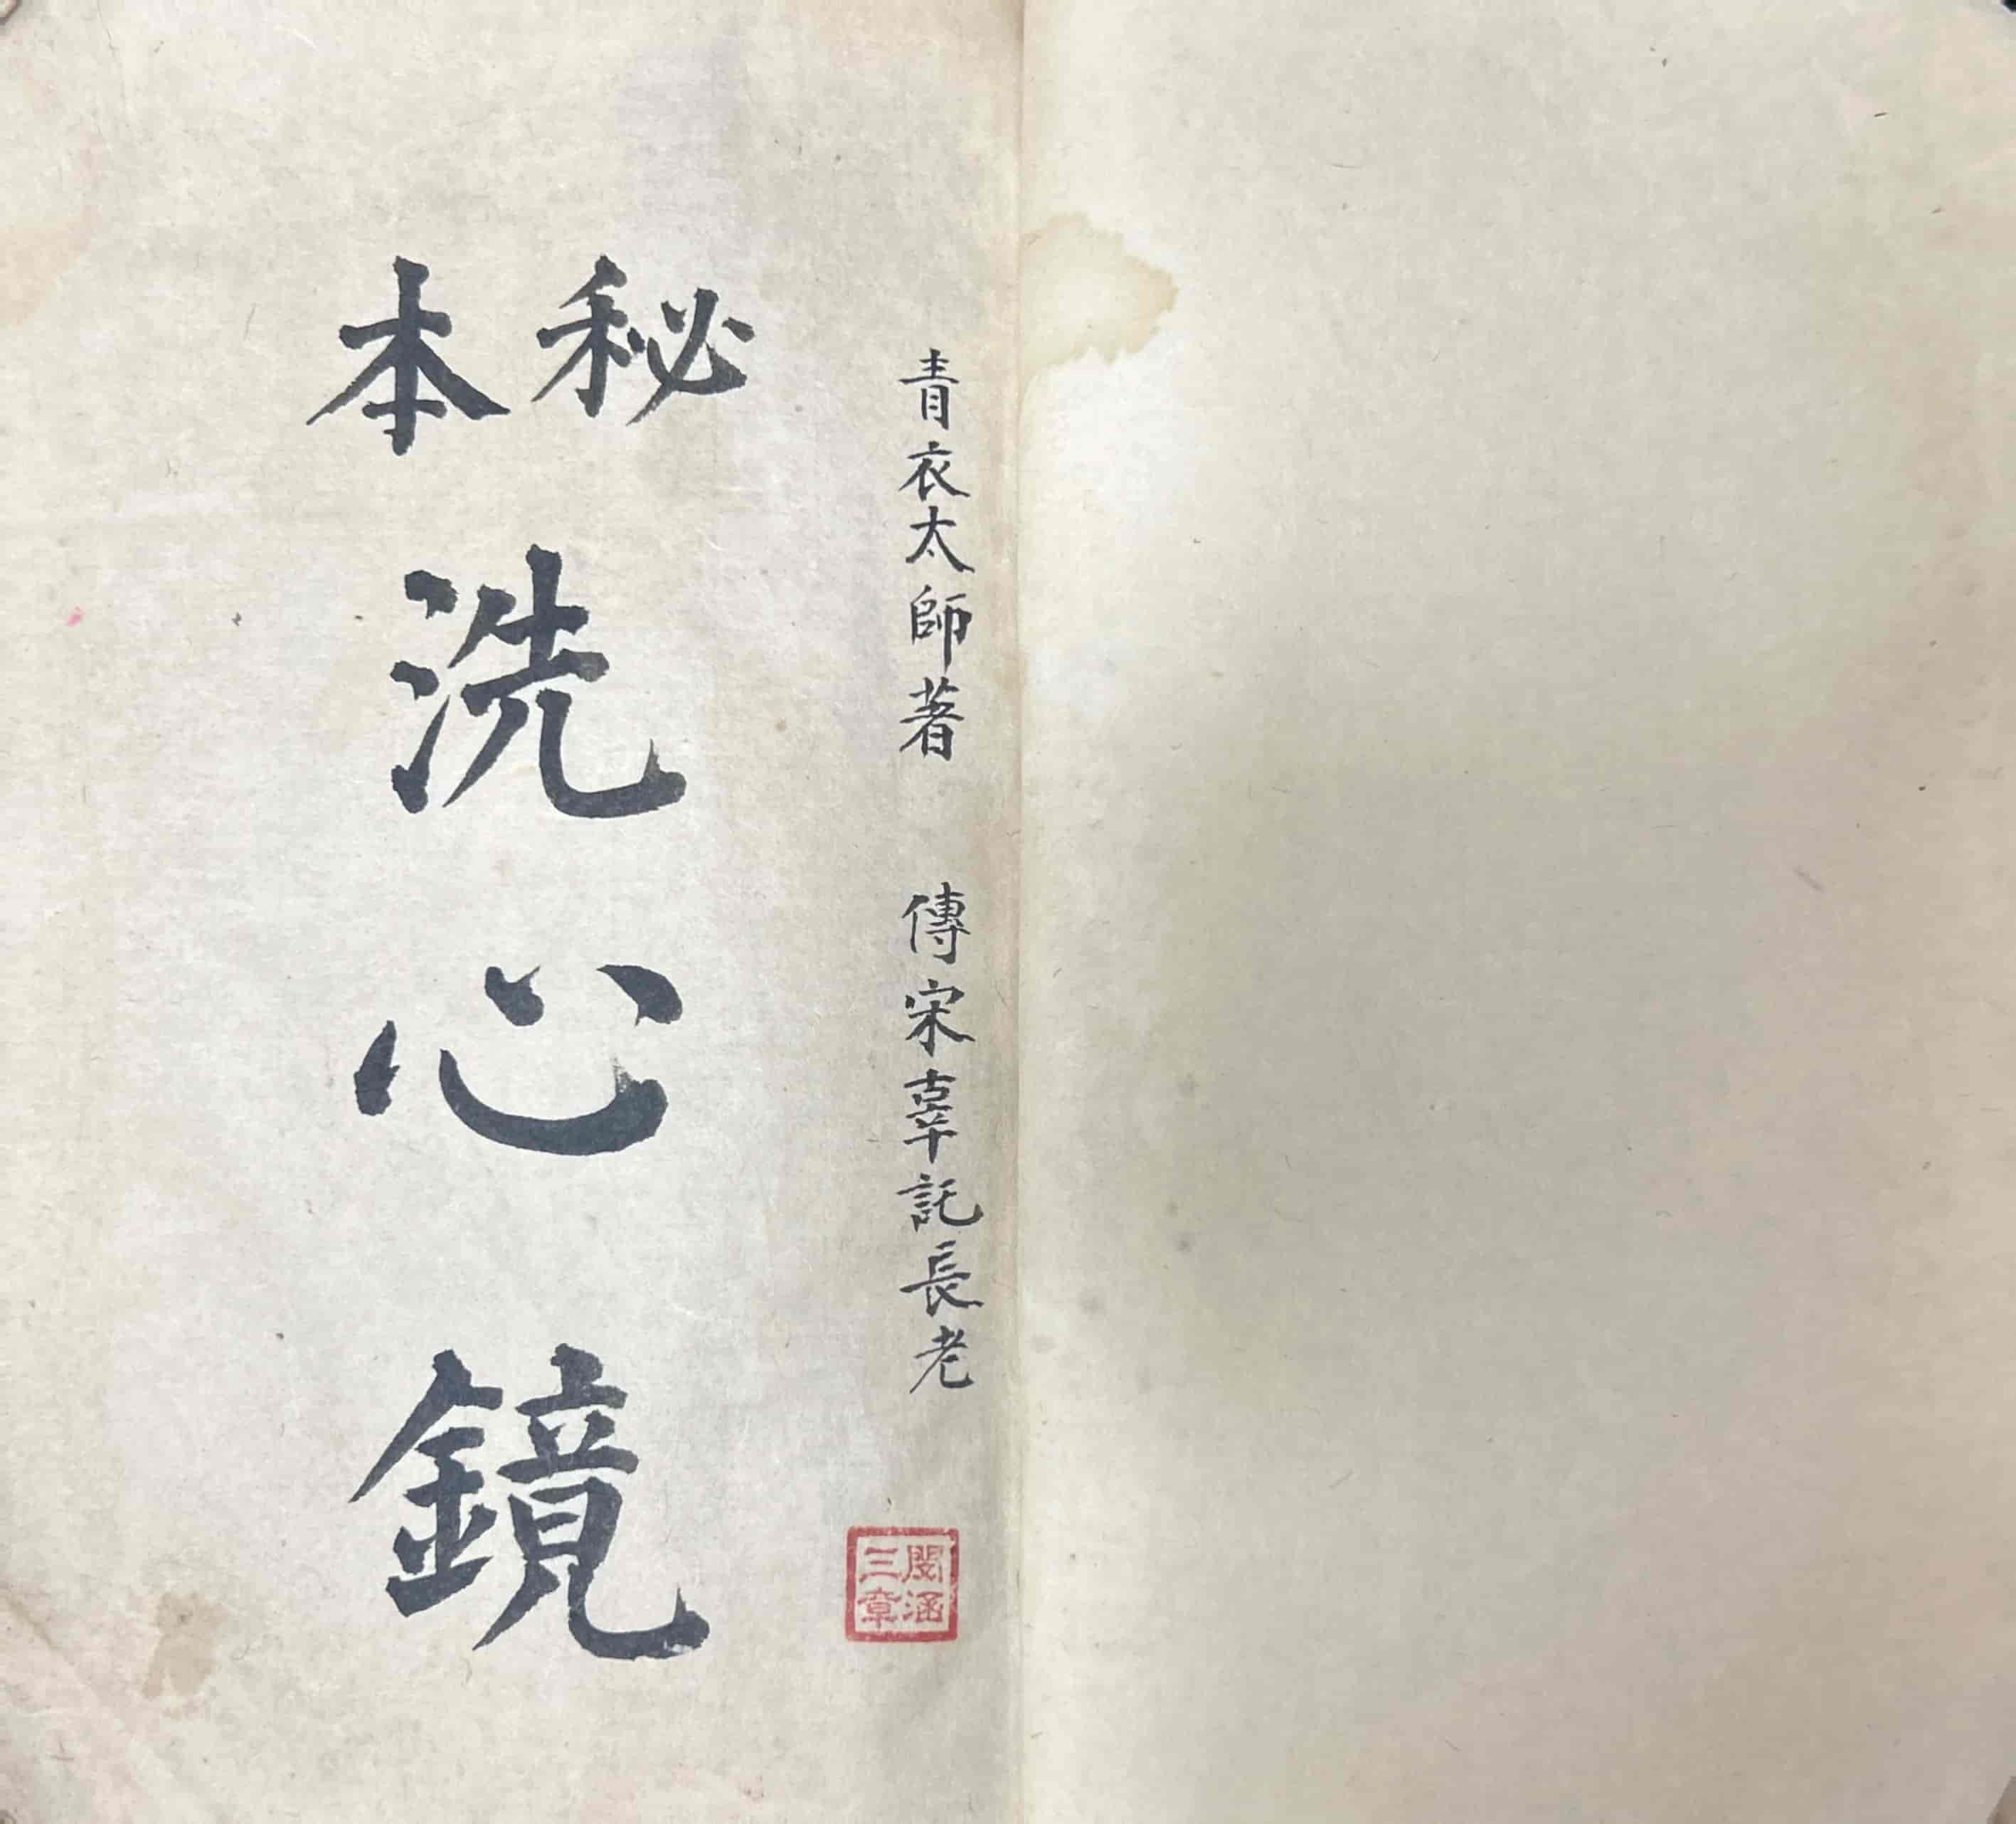 青衣太師著 傳宋辜託長老
秘本
洗心鏡
閔涵
三章